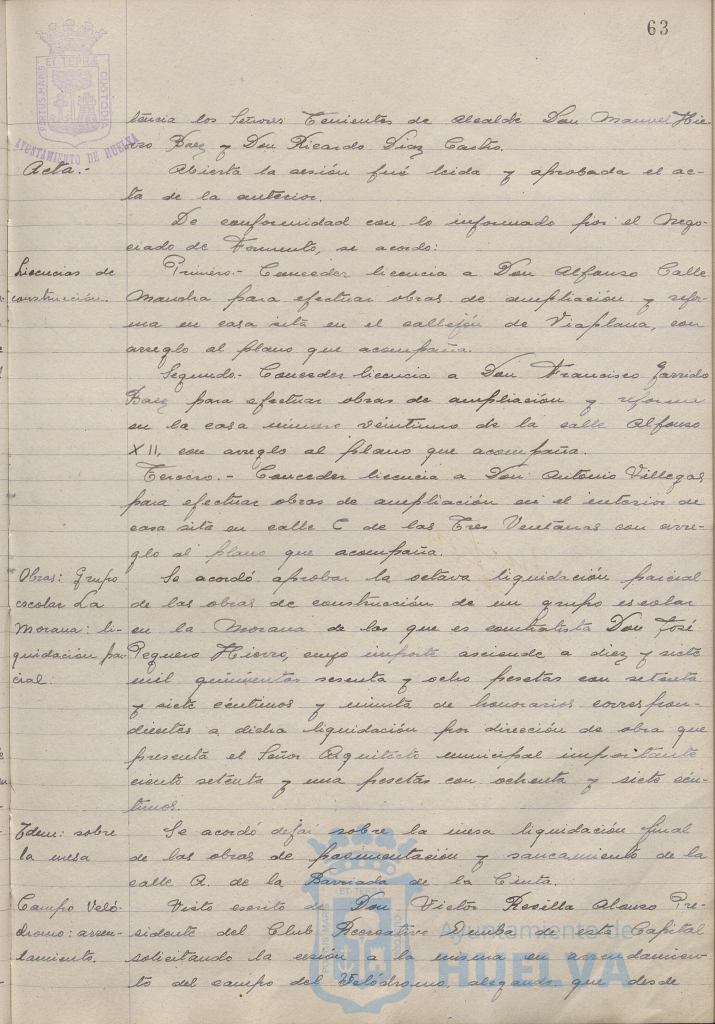 63
PORTUS MARIS ET TERRE CUSTODIA
AYUNTAMIENTO DE HUELVA
tencia los Señores Tenientes de Alcalde Don Manuel Hie-
rro Baez y Don Ricardo Diaz Castro.
Acta.-
Abierta la sesión fué leida y aprobada el ac-
ta de la anterior.
De conformidad con lo informado por el Nego-
ciado de Fomento, se acordo:
Licencias de
construcción.
Primero.- Conceder licencia a Don Alfonso Calle
Mancha para efectuar obras de ampliación y refor-
ma en casa sita en el callejón de Viaplana, con
arreglo al plano que acompaña.
Segundo.- Conceder licencia a Don Francisco Garrido
Baez para efectuar obras de ampliación y reforma
en la casa número veintiuno de la calle Alfonso
XII, con arreglo al plano que acompaña.
Tercero.- Conceder licencia a Don Antonio Villegas
para efectuar obras de ampliación en el interior de
casa sita en calle C de las Tres Ventanas con arre-
glo al plano que acompaña.
Obras: Grupo
escolar La
Morana: li-
quidación par
cial.
Se acordó aprobar la octava liquidación parcial
de las obras de construcción de un grupo escolar
en la Morana de las que es contratista Don José
Peguero Hierro, cuyo importe asciende a diez y siete
mil quinientas sesenta y ocho pesetas con setenta
y siete céntimos y minuta de honorarios correspon-
dientes a dicha liquidación por dirección de obra que
presenta el Señor Arquitecto municipal importante
ciento setenta y una pesetas con ochenta y siete cén-
timos.
Idem: sobre
la mesa
Se acordó dejar sobre la mesa liquidación final
de las obras de pavimentación y saneamiento de la
calle A. de la Barriada de la Cinta.
Campo Veló-
dromo: arren-
damiento.
Visto escrito de Don Victor Revilla Alonso Pre-
sidente del Club Recreativo Onuba de esta Capital
solicitando la cesión a la misma en arrendamien-
to del campo del Velódromo, alegando que desde
Ayuntamiento de
HUELVA